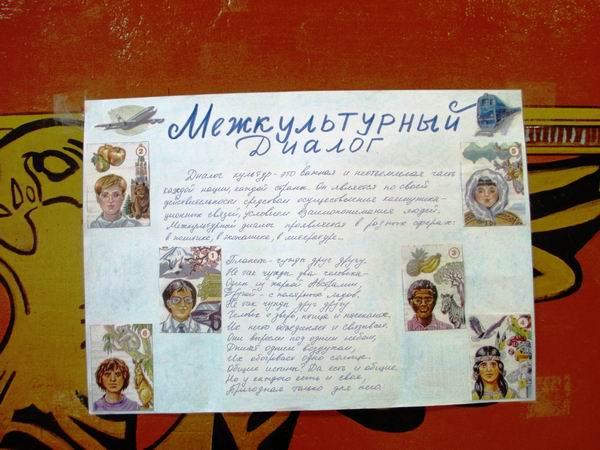 Межкультурный
Диалог
Диалог культур - это важная и неотъемлемая часть
каждой нации, каждой страны. Он является по своей
действительности средством осуществления коммуника-
ционных связей, условием взаимопонимания людей.
Межкультурный диалог проявляется в разных сферах:
в политике, в экономике, в литературе...
Планеты - чужды друг другу.
Не так чужды два человека -
Один из жаркой Австралии,
Другой - с полярных льдов.
Не так чужды друг другу
Человек и зверь, птица и насекомое.
Их много объединяет и связывает.
Они выросли под одним небом,
Дышат одним воздухом,
Их обогревает одно солнце.
Общие истины? Да есть и общие,
Но у каждого есть и своя,
Пригодная только для него.
2
5
1
3
6
4